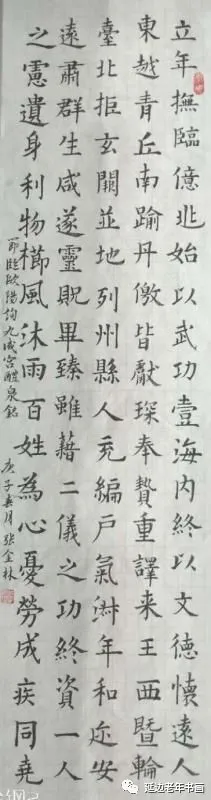 立年撫臨億兆始以武功壹海内終以文德懷遠人
東越青丘南踰丹儌皆獻琛奉贄重譯来王西暨輪
臺北拒玄闕並地列州縣人充編户氣淑年和迩安
遠肅群生咸遂靈貺畢臻雖藉二儀之功終資一人
之慮遺身利物櫛風沐雨百姓為心憂勞成疾同堯
節臨歐陽詢九成宮醴泉銘
庚子春月張金林
延边老年书画